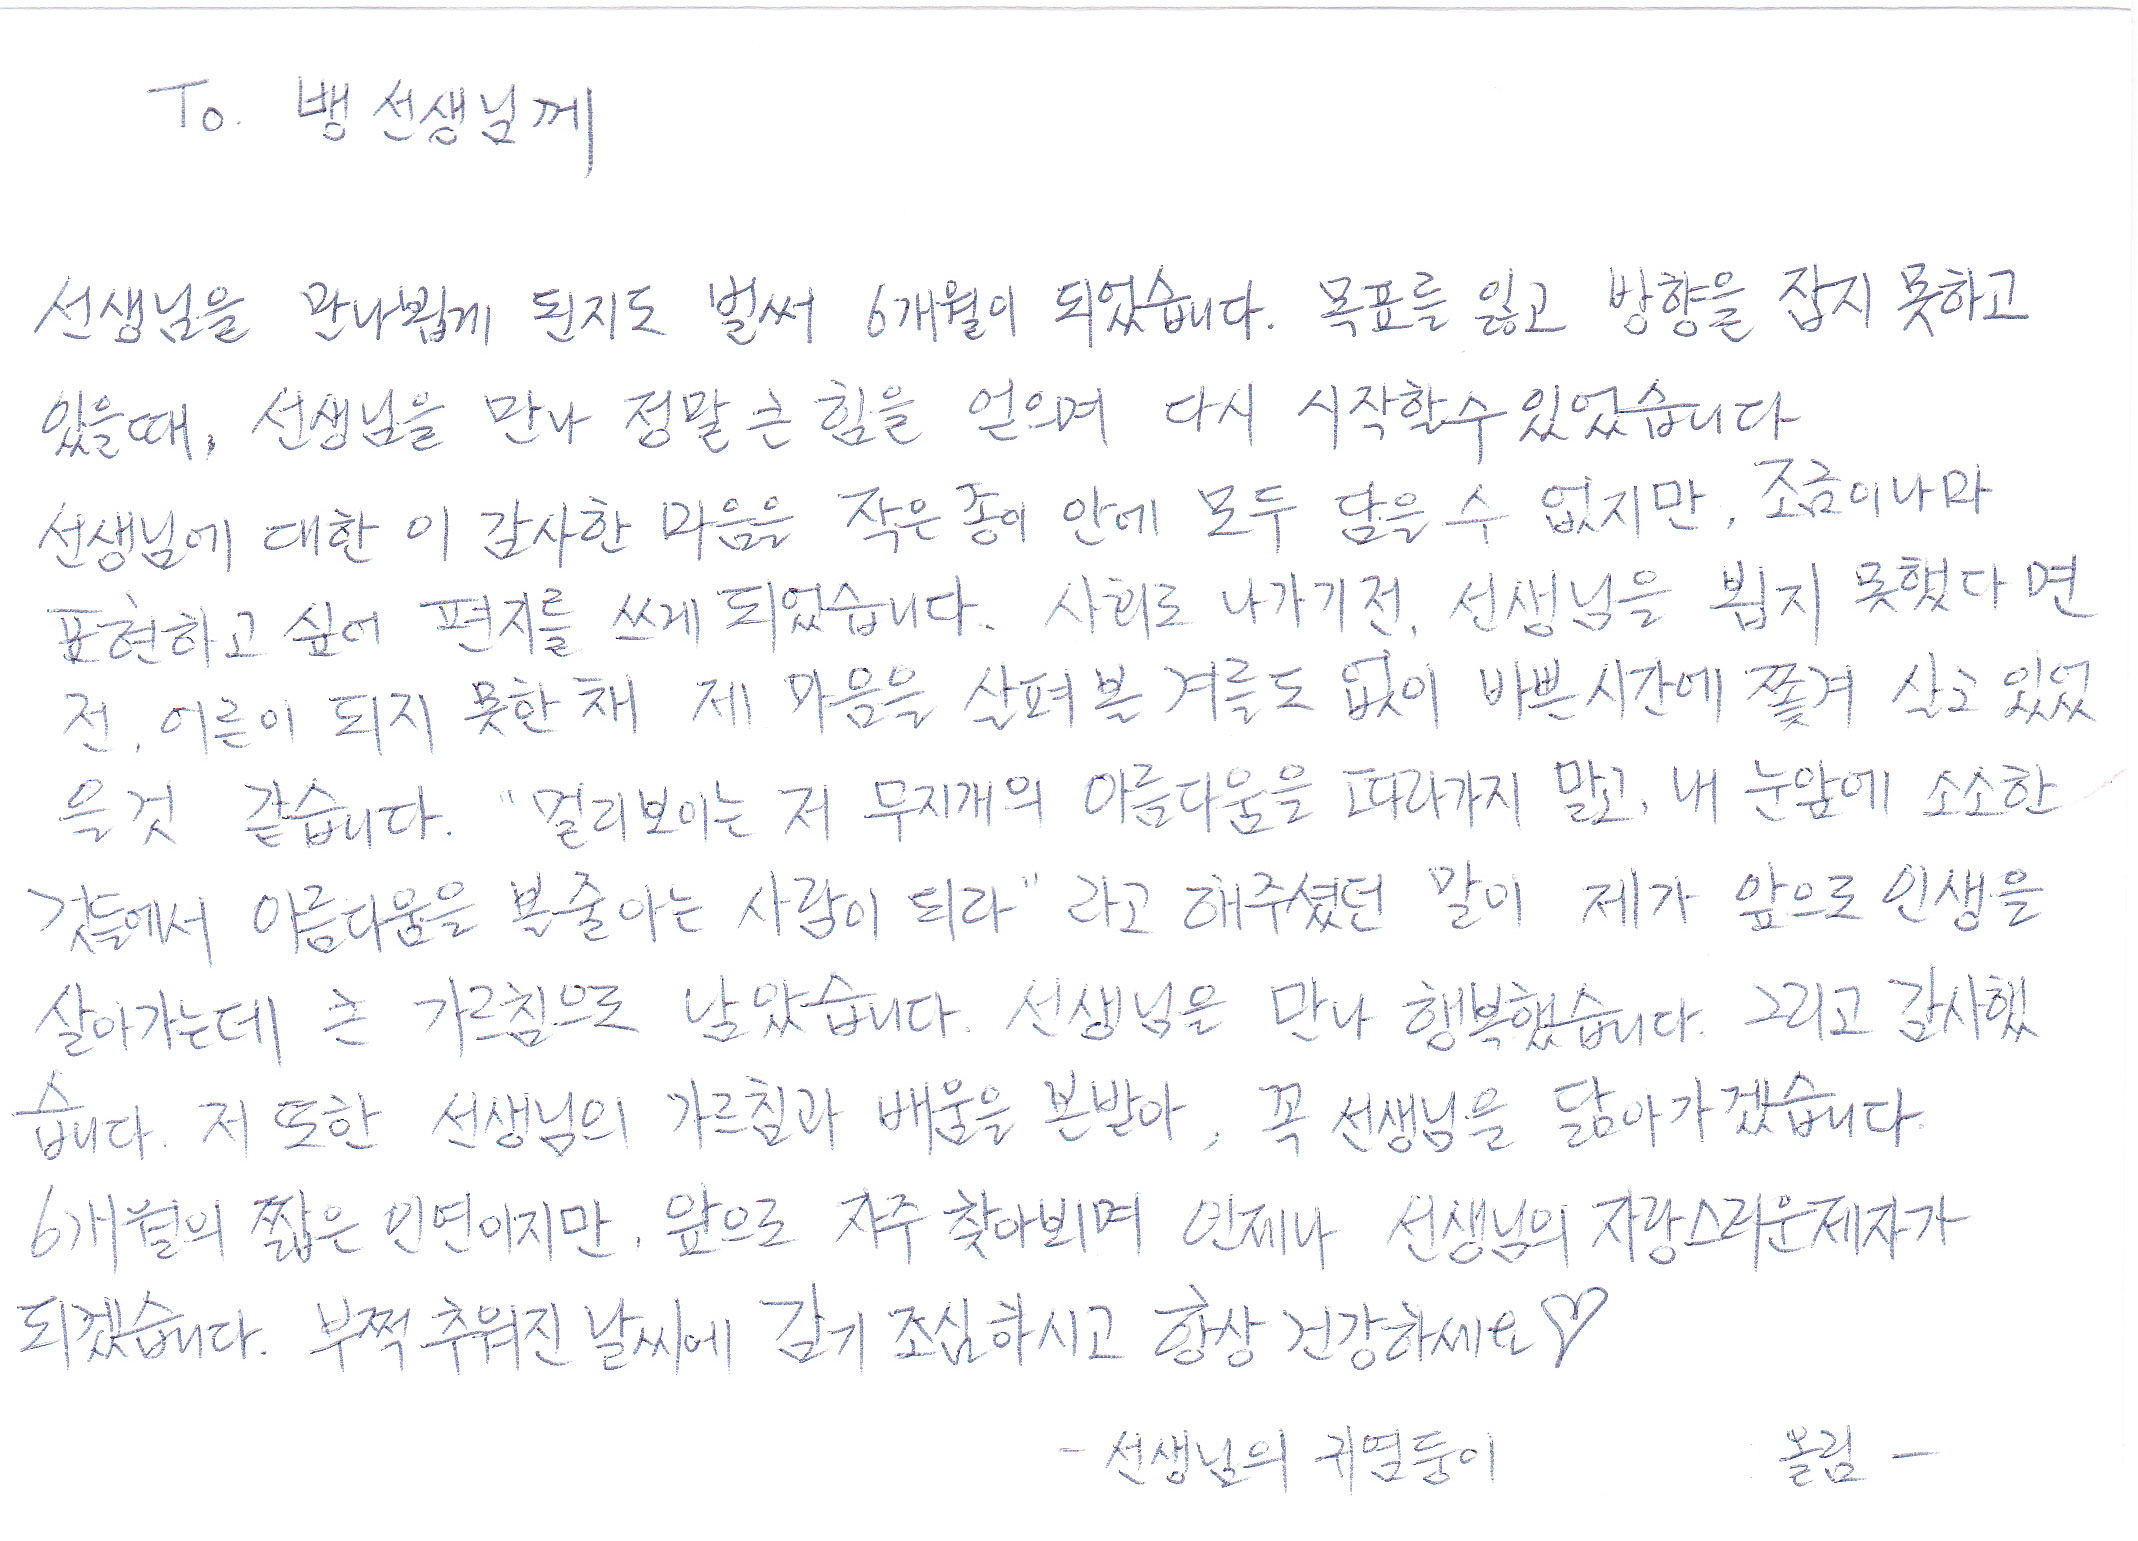 To. 뱅 선생님께
선생님을 만나뵙게 된지도 벌써 6개월이 되었습니다. 목표를 잃고 방향을 잡지 못하고
있을때, 선생님을 만나 정말 큰 힘을 얻으며 다시 시작할수 있었습니다
선생님에 대한 이 감사한 마음을 작은 종이 안에 모두 담을 수 없지만, 조금이나마
표현하고 싶어 편지를 쓰게 되었습니다. 사회로 나가기전, 선생님을 뵙지 못했다면
전, 어른이 되지 못한 채 제 마음을 살펴 볼 겨를도 없이 바쁜시간에 쫓겨 살고 있었
을것 같습니다. "멀리보이는 저 무지개의 아름다움을 따라가지 말고, 내 눈앞에 소소한
것들에서 아름다움을 볼줄아는 사람이 되라" 라고 해주셨던 말이 제가 앞으로 인생을
살아가는데 큰 가르침으로 남았습니다. 선생님을 만나 행복했습니다. 그리고 감사했
습니다. 저 또한 선생님의 가르침과 배움을 본받아, 꼭 선생님을 닮아가겠습니다.
6개월의 짧은 인연이지만, 앞으로 자주 찾아뵈며 언제나 선생님의 자랑스러운제자가
되겠습니다. 부쩍 추워진 날씨에 감기 조심하시고 항상 건강하세요♡
- 선생님의 귀염둥이 올림 -